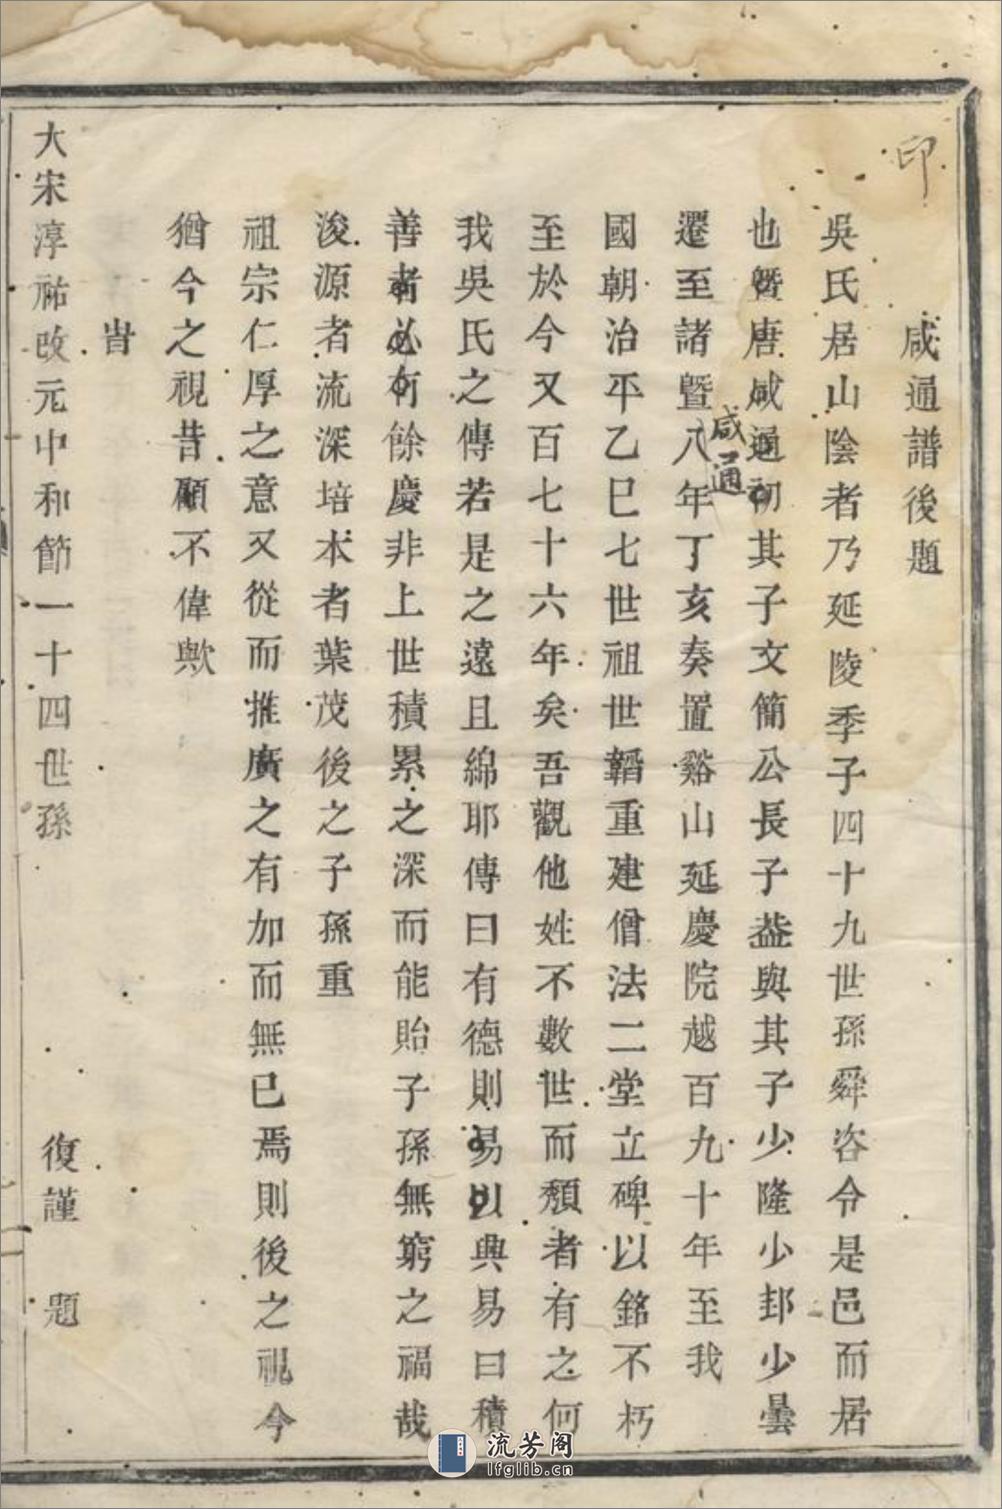 印
咸通譜後題
吳氏居山陰者乃延陵季子四十九世孫舜咨令是邑而居
也曁唐咸通初其子文簡公長子葢與其子少隆少邽少曇
咸通
遷至諸曁八年丁亥奏置谿山延慶院越百九十年至我
國朝治平乙巳七世祖世韜重建僧法二堂立碑以銘不朽
至於今又百七十六年矣吾觀他姓不數世而頽者有之何
我吳氏之傳若是之遠且綿耶傳曰有德則易以興易曰積
善者必有餘慶非上世積累之深而能貽子孫無窮之福哉
浚源者流深培本者葉茂後之子孫重
祖宗仁厚之意又從而推廣之有加而無已焉則後之視今
猶今之視昔顧不偉歟
旹
大宋淳祐改元中和節一十四世孫 復謹 題
流芳阁
lfglib.cn